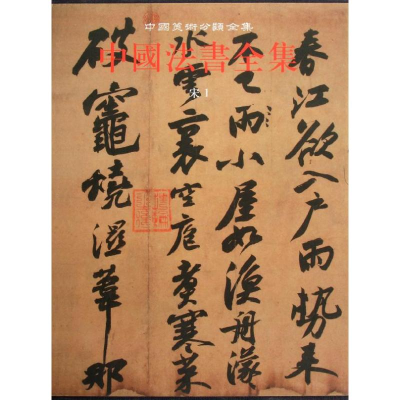 中國美術分類全集
中國法書全集
宋 1
春江欲入戶雨勢來
不已雨小屋如漁舟濛々
水雲裏空庖煮寒菜
破竈燒濕葦那